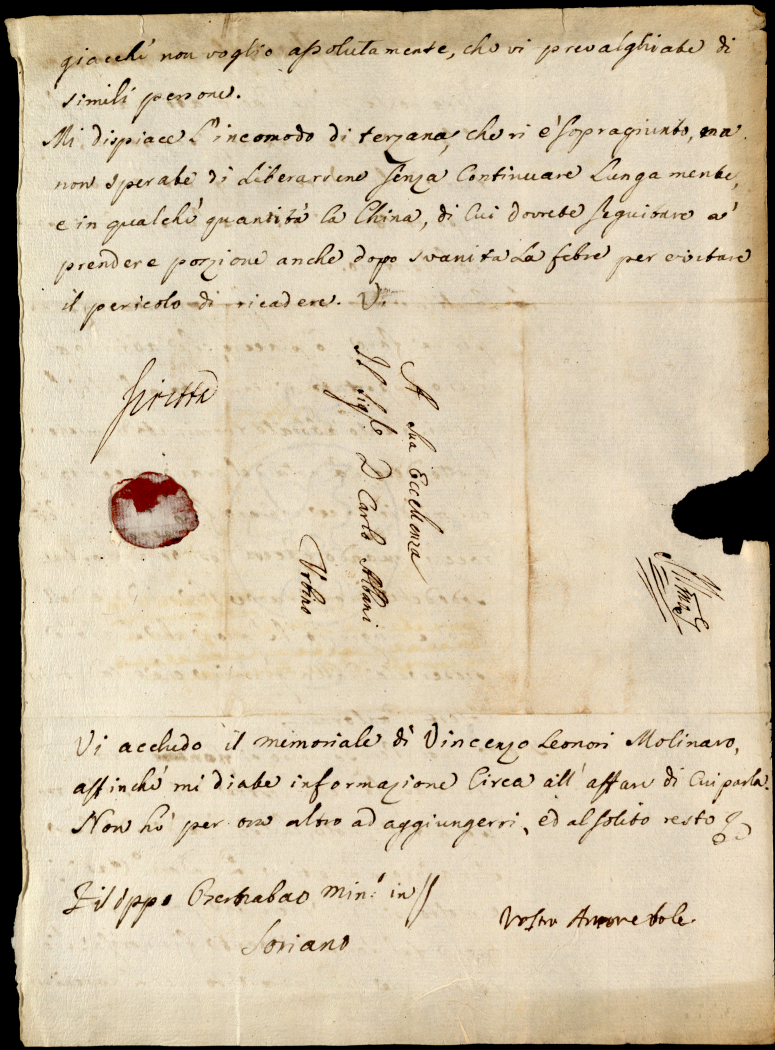 giacchè non voglio assolutamente, che vi prevalghiate di
simili persone.
Mi dispiace l'incomodo di terzana, che vi è sopragiunto, ma
non sperate di liberarvene senza continuare lungamente,
e in qualchè quantità la China, di cui dovrete seguitare à
prendere porzione anche dopo svanita la febre per evitare
il pericolo di ricadere. V.
A Sua Eccellenza
Il Sig.re D Carlo Albani
Urbino
Vi accludo il memoriale di Vincenzo Leonori Molinaro,
affinchè mi diate informazione circa all'affare di cui parla.
Non hò per ora altro ad aggiungervi, ed al solito resto
Filippo min: in
Soriano
Vostro Amorevole